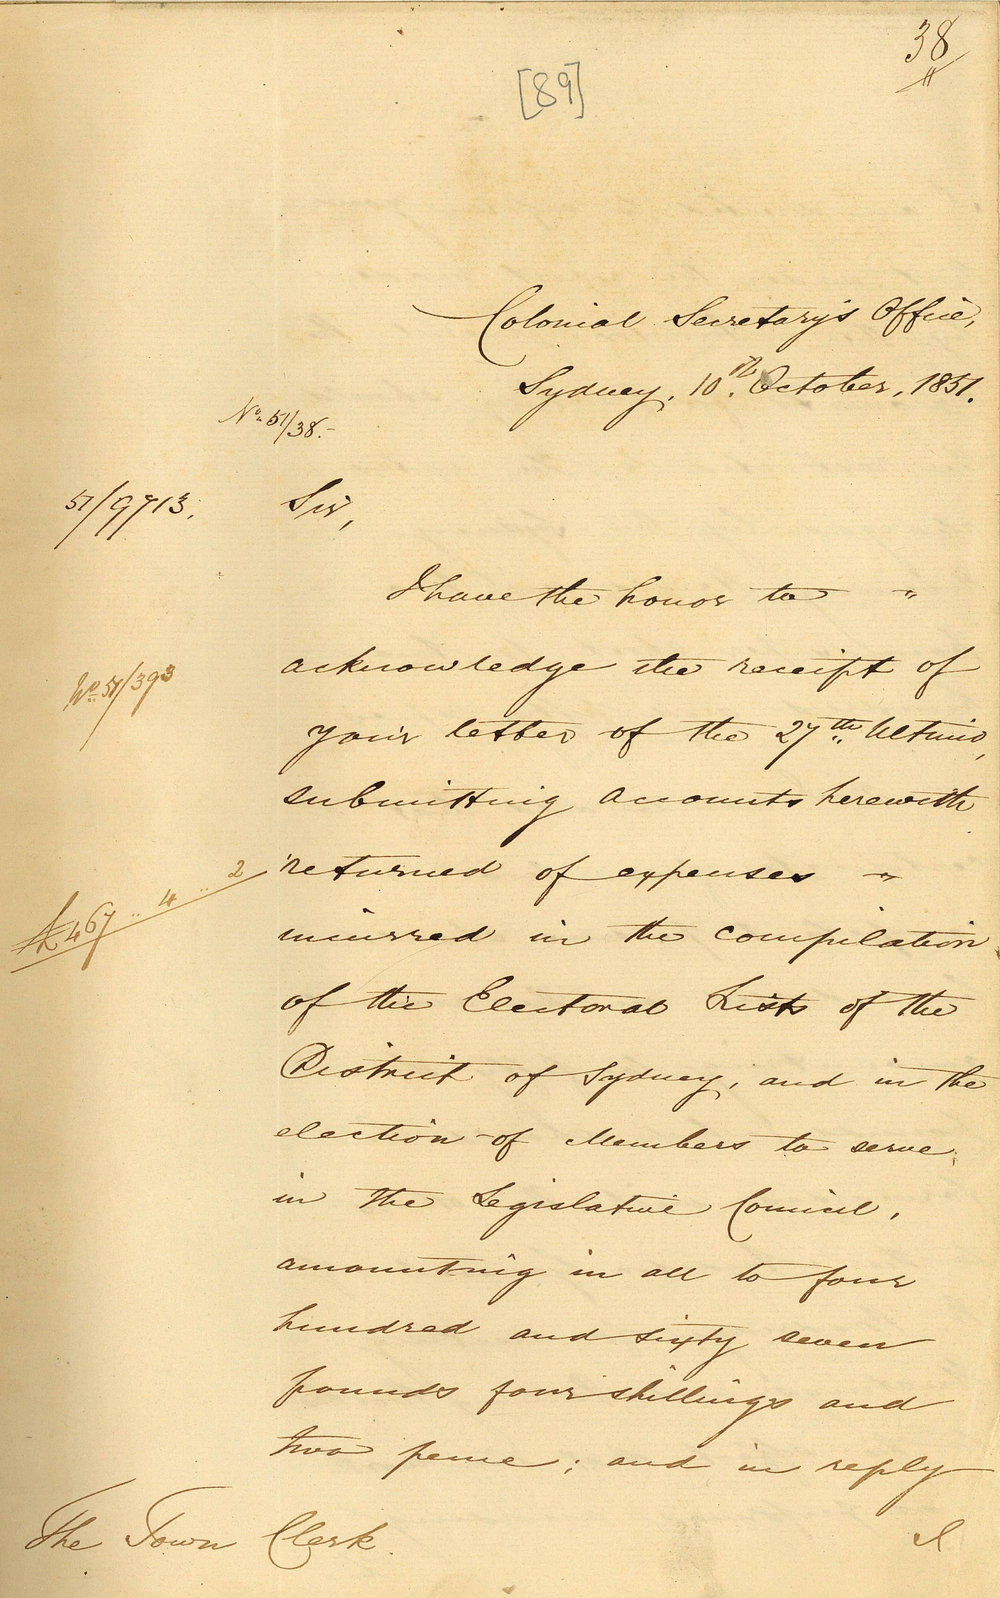 38
[89]
Colonial Secretary's Office,
Sydney, 10th October, 1851.
No. 51/38.-
51/9713.
Sir,
I have the honor to "
acknowledge the receipt of
No. 51/393
your letter of the 27th Ultimo,
submitting accounts herewith
returned of expenses "
£467 .. 4 .. 2
incurred in the compilation
of the Electoral Lists of the
District of Sydney, and in the
election of Members to serve
in the Legislative Council,
amounting in all to four
hundred and sixty seven
pounds four shillings and
two pence; and in reply
The Town Clerk.
I